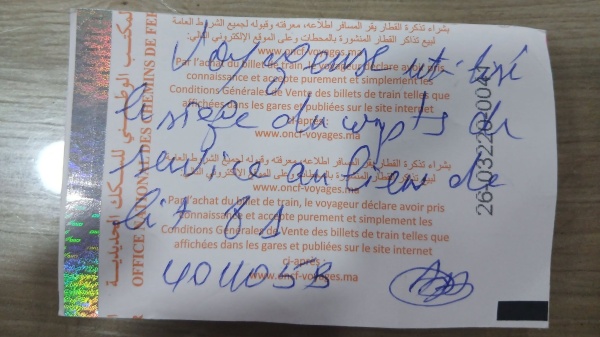 بشراء تذكرة القطار يقر المسافر اطلاعه، معرفته وقبوله لجميع الشروط العامة
لبيع تذاكر القطار المنشورة بالمحطات وعلى الموقع الإلكتروني التالي:
www.oncf-voyages.ma
Par l'achat du billet de train, le voyageur déclare avoir pris
connaissance et accepte purement et simplement les
Conditions Générales de Vente des billets de train telles que
affichées dans les gares et publiées sur le site internet
ci-après :
www.oncf-voyages.ma
بشراء تذكرة القطار يقر المسافر اطلاعه، معرفته وقبوله لجميع الشروط العامة
لبيع تذاكر القطار المنشورة بالمحطات وعلى الموقع الإلكتروني التالي:
www.oncf-voyages.ma
Par l'achat du billet de train, le voyageur déclare avoir pris
connaissance et accepte purement et simplement les
Conditions Générales de Vente des billets de train telles que
affichées dans les gares et publiées sur le site internet
ci-après :
www.oncf-voyages.ma
Voyageuse utilisé
siège du
service au lieu de
lit 81
المكتب الوطني للسكك الحديدية
OFFICE NATIONAL DES CHEMINS DE FER